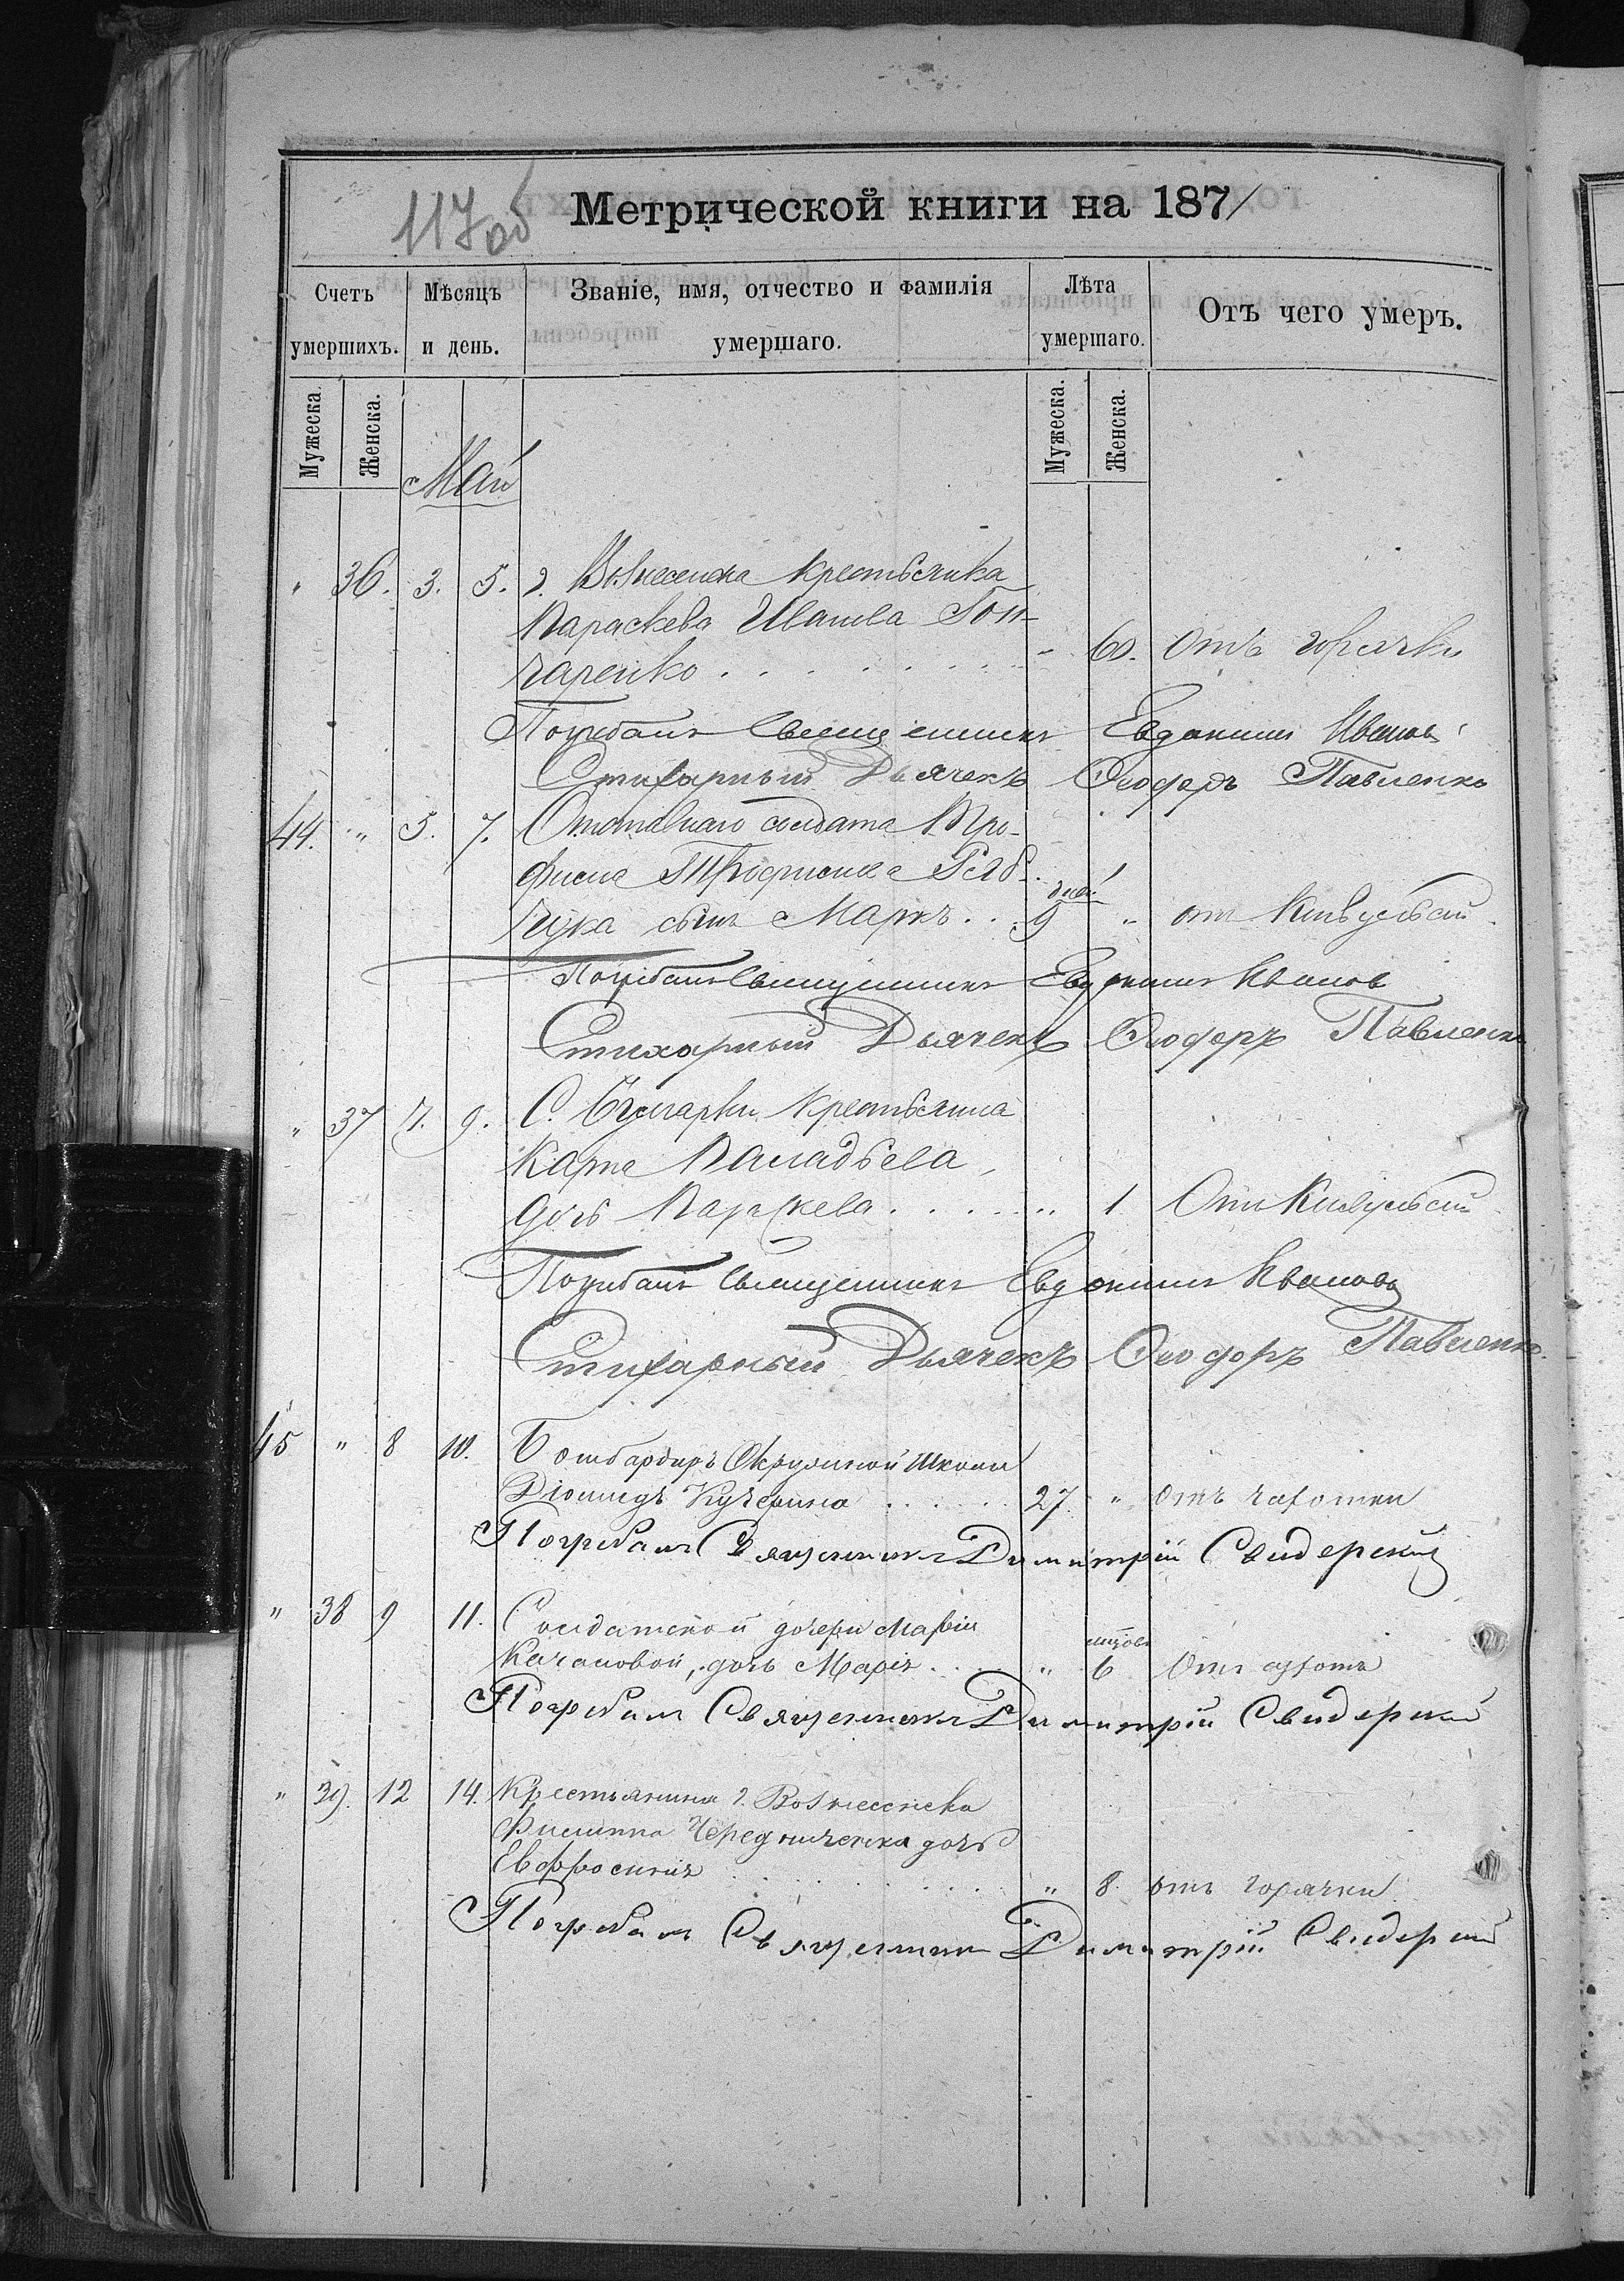 117об
Метрической книги на 1871
Счетъ умершихъ. Мѣсяцъ и день. Званіе, имя, отчество и фамилія умершаго. Лѣта умершаго. Отъ чего умеръ.
Мужеска. Женска. Мужеска. Женска.
Май
" 36. 3. 5. г. Вознесенска крестьянка
Параскева Иванова Гон-
чаренко . . . - 60. Отъ горячки
Погребалъ Священникъ Евдокимъ Ивановъ
Стихарный Дьячекъ Ѳеодоръ Павленко
44. " 5. 7. Отставнаго солдата Тро-
фима Трофимова Ряб-
дней
чука сынъ Маркъ . . 9 " отъ
Погребалъ Священникъ Евдокимъ Ивановъ
Стихарный Дьячекъ Ѳеодоръ Павленко
" 37 7. 9. С. Болгарки крестьянина
Карпа Паладьева
дочь Параскева . . . . . " 1 Отъ
Погребалъ Священникъ Евдокимъ Ивановъ
Стихарный Дьячекъ Ѳеодоръ Павленко
45 " 8 10. Бомбардиръ Окружной Школы
Діомидъ Кучерина . . . . . 27. " отъ чахотки
Погребалъ Священникъ Димитрій Свидерскій
" 38 9 11. Солдатской дочери Маріи
Качановой, дочь Марія . . . " 6 Отъ
Погребалъ Священникъ Димитрій Свидерскій
" 39. 12 14. Крестьянина г. Вознесенска
Филиппа Чередниченка дочь
Евфросинія . . . . . " 8. отъ горячки
Погребалъ Священникъ Димитрій Свидерскій